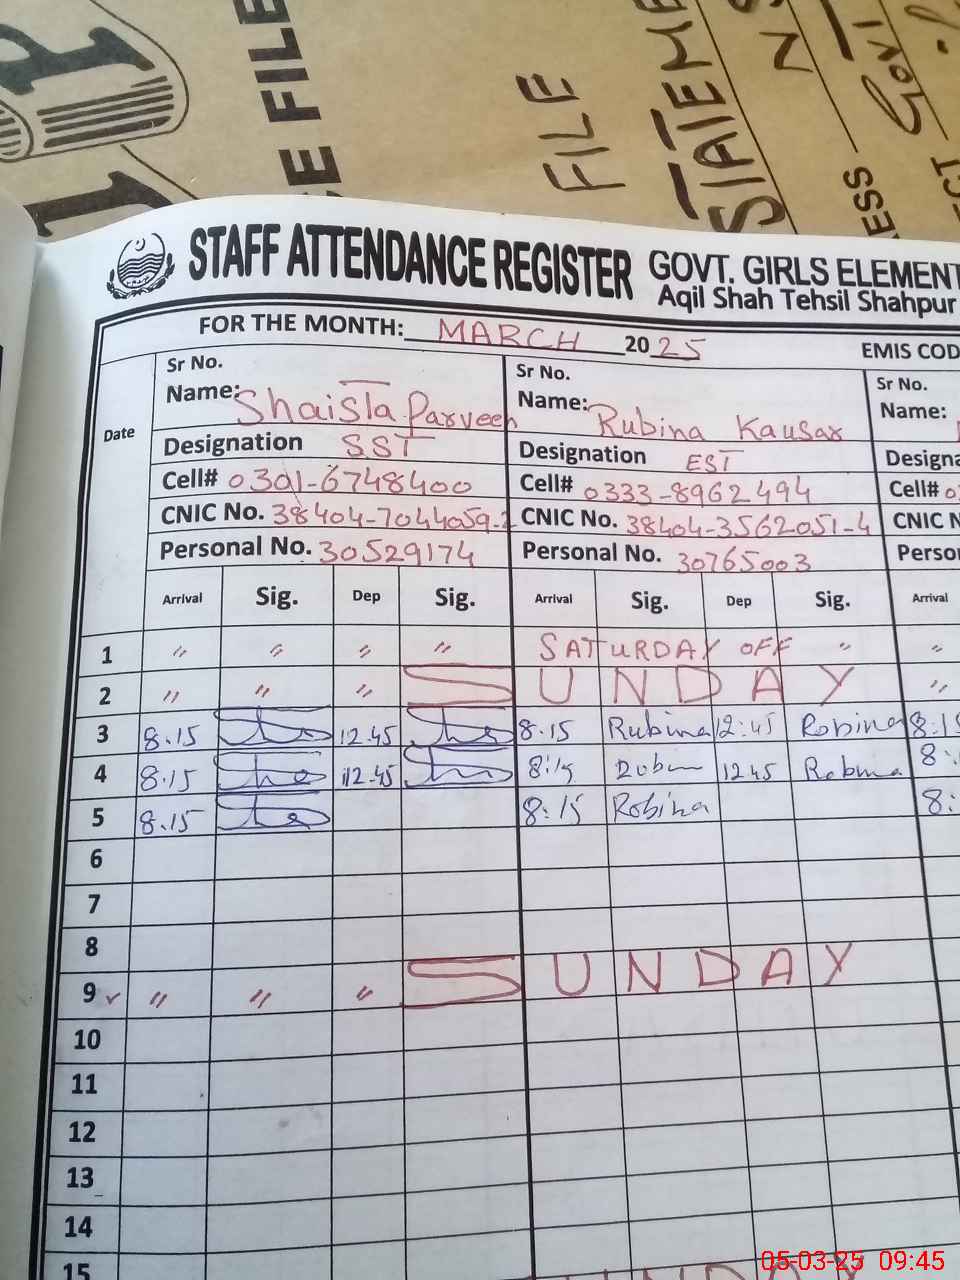 E FILE
FILE
STATEME
N
Govt
ESS
CT
STAFF ATTENDANCE REGISTER GOVT. GIRLS ELEMENT
Aqil Shah Tehsil Shahpur
FOR THE MONTH: MARCH 2025 EMIS COD
Date
Sr No. Sr No. Sr No.
Name: Shaista Parveen Name: Rubina Kausar Name:
Designation SST Designation EST Designa
Cell# 0301-6748400 Cell# 0333-8962494 Cell# 03
CNIC No. 38404-7044059-2 CNIC No. 38404-3562051-4 CNIC N
Personal No. 30529174 Personal No. 30765003 Perso
Arrival Sig. Dep Sig. Arrival Sig. Dep Sig. Arrival
1 " " " " SATURDAY OFF " "
2 " " " SUNDAY "
3 8.15 12.45 8.15 Rubina 12:45 Robina 8:15
4 8.15 12.45 8:15 12 45 Robina 8:
5 8.15 8:15 Robina 8:
6
7
8
9 ✓ " " " SUNDAY
10
11
12
13
14
15 SUNDAY
05-03-25 09:45